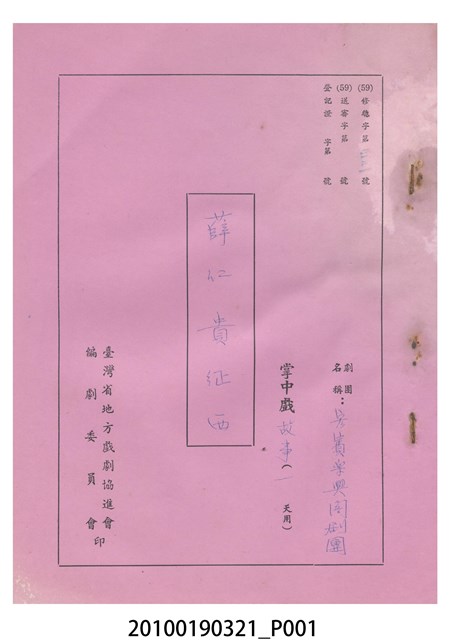 (59)修趣字第三一號
(59)送審字第 號
登記證 字第 號
劇團名稱：
掌中戲故事(一天用)
薛仁貴征西
臺灣省地方戲劇協進會
編劇委員會印
20100190321_P001